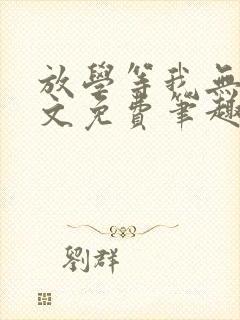 放學等我無
文免費筆趣
劉群